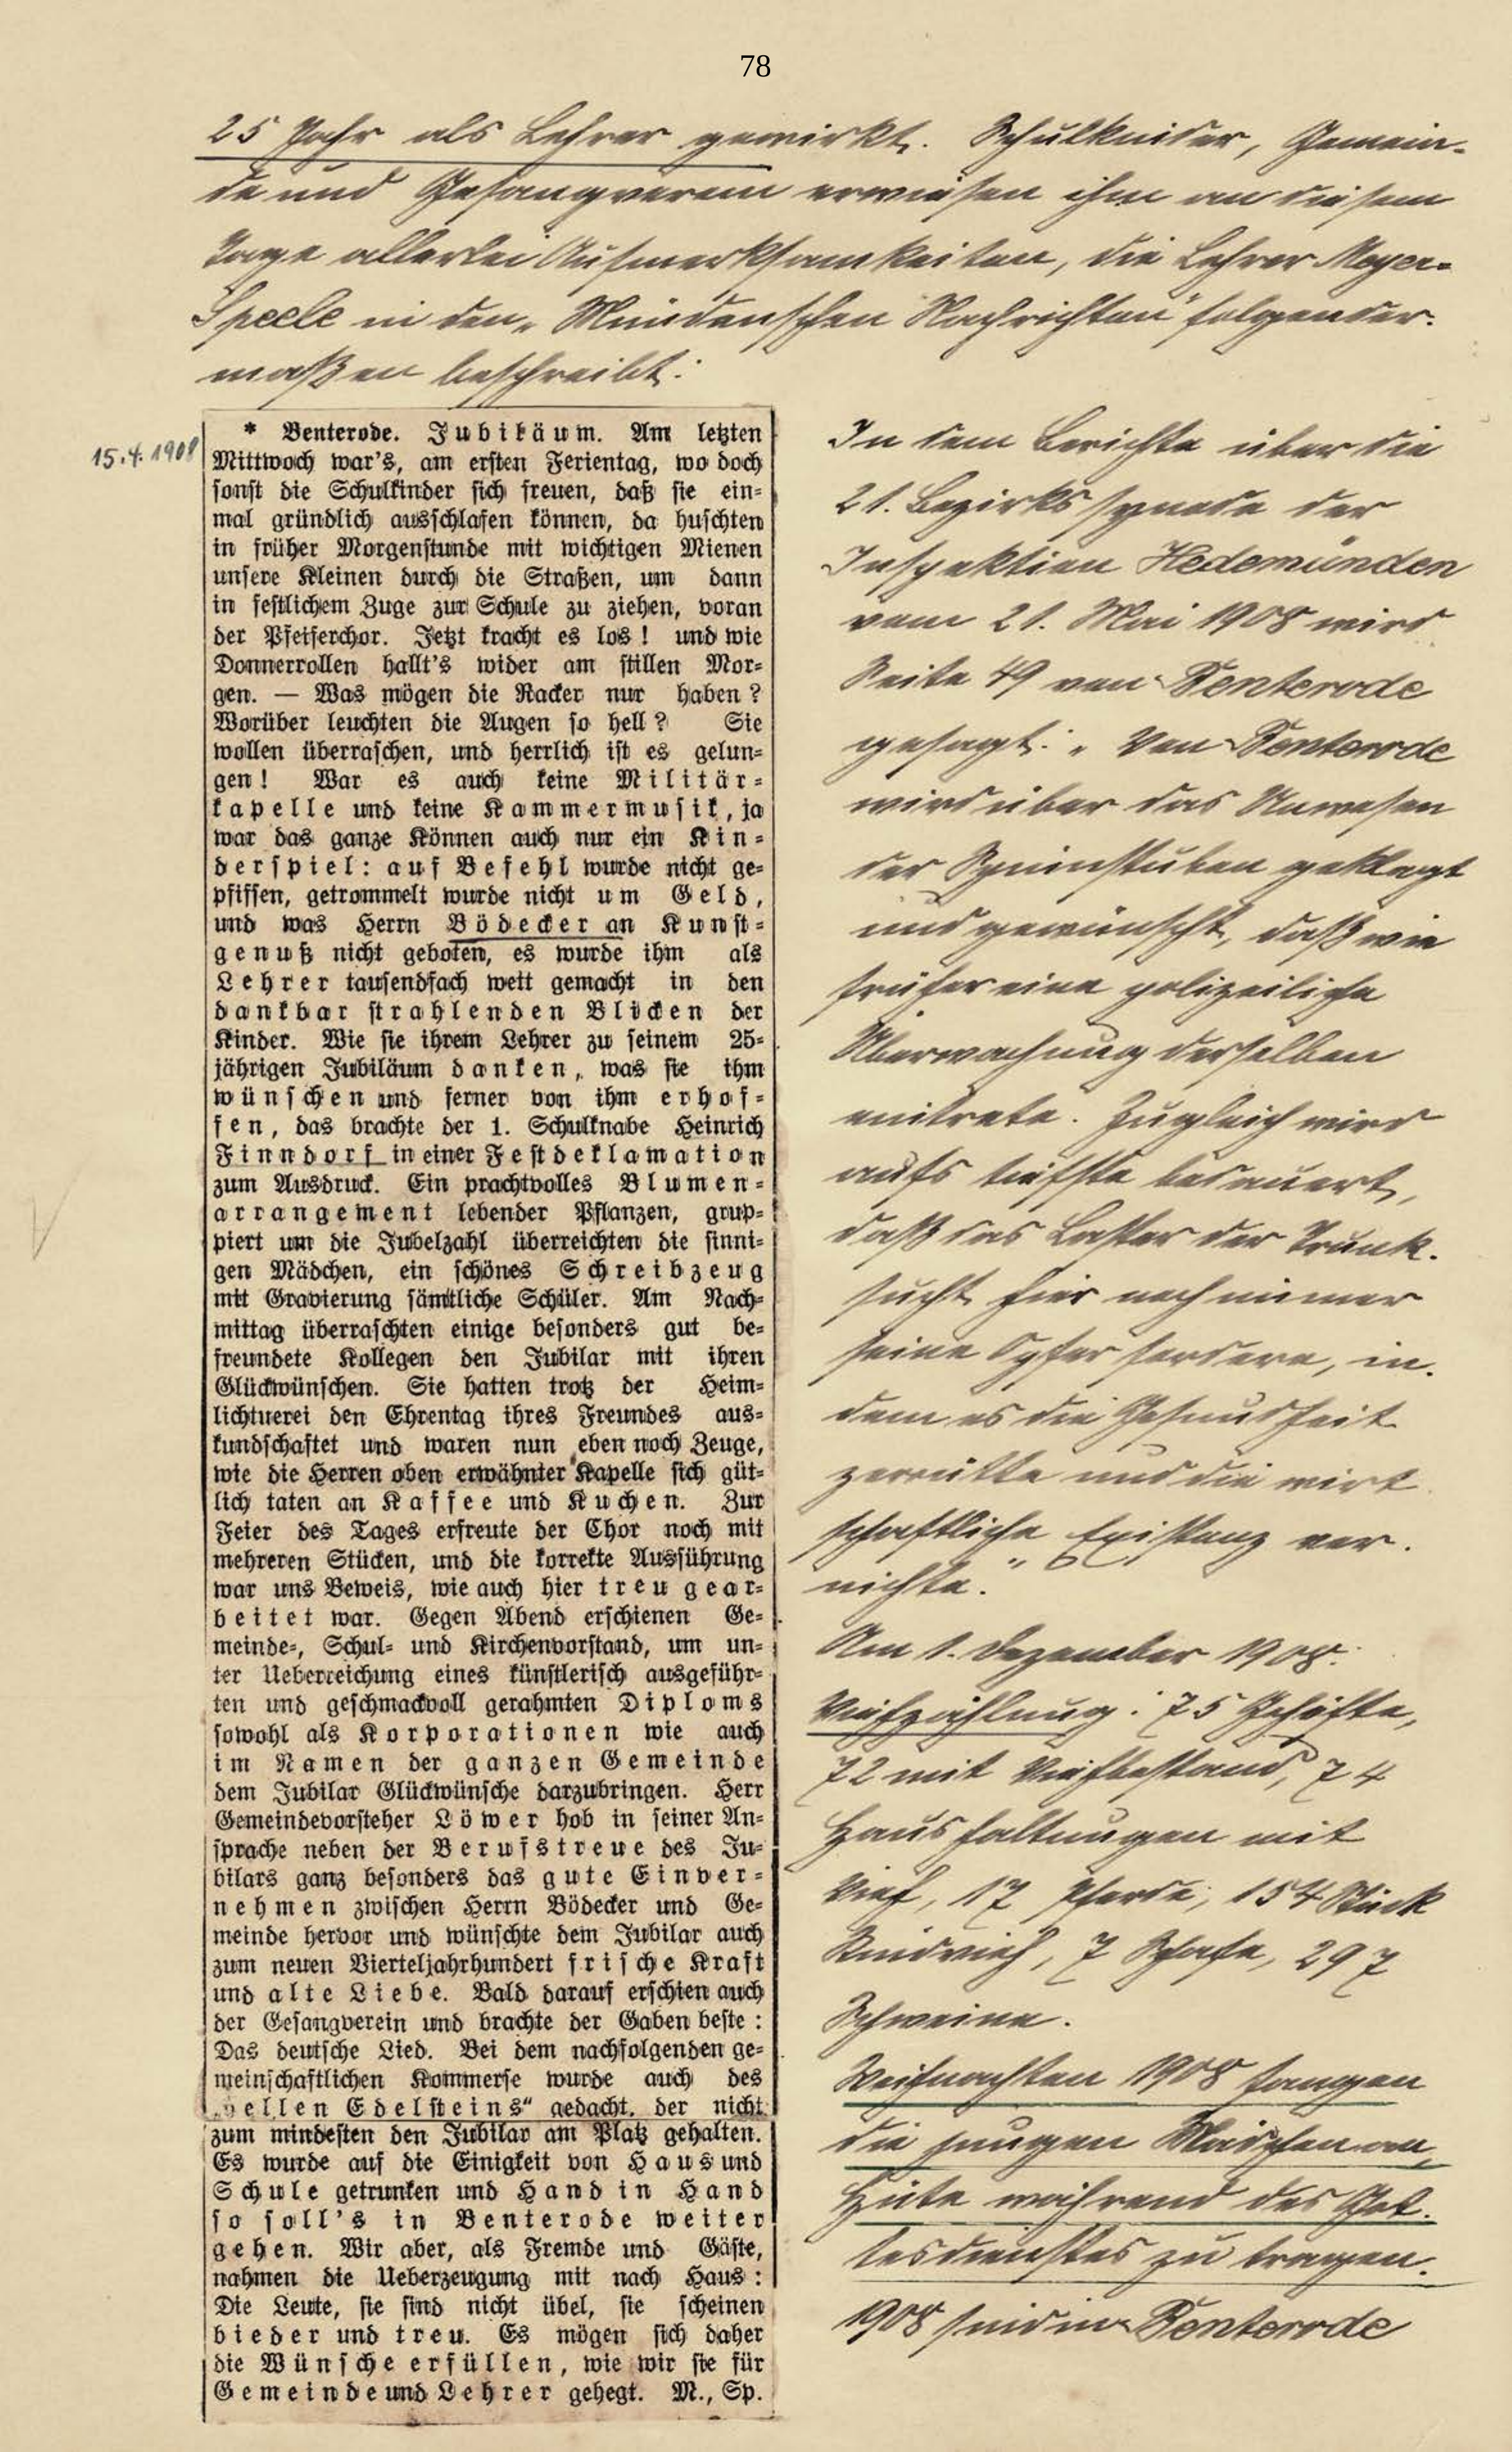 78
25 Jahr als Lehrer gewirkt. Schulkinder, Gemein-
de und Gesangverein erwiesen ihm an diesem
Tage allerlei Aufmerksamkeiten, die Lehrer Meyer-
Speele in den „Mündenschen Nachrichten" folgender-
maßen beschreibt:
15.4.1908
* Benterode. Jubiläum. Am letzten
Mittwoch war's, am ersten Ferientag, wo doch
sonst die Schulkinder sich freuen, daß sie ein-
mal gründlich ausschlafen können, da huschten
in früher Morgenstunde mit wichtigen Mienen
unsere Kleinen durch die Straßen, um dann
in festlichem Zuge zur Schule zu ziehen, voran
der Pfeiferchor. Jetzt kracht es los! und wie
Donnerrollen hallt's wider am stillen Mor-
gen. — Was mögen die Racker nur haben?
Worüber leuchten die Augen so hell? Sie
wollen überraschen, und herrlich ist es gelun-
gen! War es auch keine Militär-
kapelle und keine Kammermusik, ja
war das ganze Können auch nur ein Kin-
derspiel: auf Befehl wurde nicht ge-
pfiffen, getrommelt wurde nicht um Geld,
und was Herrn Bödecker an Kunst-
genuß nicht geboten, es wurde ihm als
Lehrer tausendfach wett gemacht in den
dankbar strahlenden Blicken der
Kinder. Wie sie ihrem Lehrer zu seinem 25-
jährigen Jubiläum danken, was sie ihm
wünschen und ferner von ihm erhof-
fen, das brachte der 1. Schulknabe Heinrich
Finndorf in einer Festdeklamation
zum Ausdruck. Ein prachtvolles Blumen-
arrangement lebender Pflanzen, grup-
piert um die Jubelzahl überreichten die sinni-
gen Mädchen, ein schönes Schreibzeug
mit Gravierung sämtliche Schüler. Am Nach-
mittag überraschten einige besonders gut be-
freundete Kollegen den Jubilar mit ihren
Glückwünschen. Sie hatten trotz der Heim-
lichtuerei den Ehrentag ihres Freundes aus-
kundschaftet und waren nun eben noch Zeuge,
wie die Herren oben erwähnter Kapelle sich güt-
lich taten an Kaffee und Kuchen. Zur
Feier des Tages erfreute der Chor noch mit
mehreren Stücken, und die korrekte Ausführung
war uns Beweis, wie auch hier treu gear-
beitet war. Gegen Abend erschienen Ge-
meinde-, Schul- und Kirchenvorstand, um un-
ter Ueberreichung eines künstlerisch ausgeführ-
ten und geschmackvoll gerahmten Diploms
sowohl als Korporationen wie auch
im Namen der ganzen Gemeinde
dem Jubilar Glückwünsche darzubringen. Herr
Gemeindevorsteher Löwer hob in seiner An-
sprache neben der Berufstreue des Ju-
bilars ganz besonders das gute Einver-
nehmen zwischen Herrn Bödecker und Ge-
meinde hervor und wünschte dem Jubilar auch
zum neuen Vierteljahrhundert frische Kraft
und alte Liebe. Bald darauf erschien auch
der Gesangverein und brachte der Gaben beste:
Das deutsche Lied. Bei dem nachfolgenden ge-
meinschaftlichen Kommerse wurde auch des
Edelsteins" gedacht, der nicht
zum mindesten den Jubilar am Platz gehalten.
Es wurde auf die Einigkeit von Haus und
Schule getrunken und Hand in Hand
so soll's in Benterode weiter
gehen. Wir aber, als Fremde und Gäste,
nahmen die Ueberzeugung mit nach Haus:
Die Leute, sie sind nicht übel, sie scheinen
bieder und treu. Es mögen sich daher
die Wünsche erfüllen, wie wir sie für
Gemeinde und Lehrer gehegt. M., Sp.
In dem Berichte über die
21. Bezirkssynode der
Inspektion Hedemünden
vom 21. Mai 1908 wird
Seite 49 von Benterode
gesagt: „Von Benterode
wird über das Unwesen
der Spinnstuben geklagt
und gewünscht, daß wie
früher eine polizeiliche
Überwachung derselben
eintrete. Zugleich wird
aufs tiefste bedauert,
daß das Laster der Trunk-
sucht hier noch immer
seine Opfer fordere, in-
dem es die Gesundheit
zerrütte und die wirt
schaftliche Existenz ver-
nichte."
Am 1. Dezember 1908:
Viehzählung: 75 Gehöfte,
72 mit Viehbestand, 74
Haushaltungen mit
Vieh, 17 Pferde, 154 Stück
Rindvieh, 7 Schafe, 297
Schweine.
Weihnachten 1908 fangen
die jungen Mädchen an,
Hüte während des Got-
tesdienstes zu tragen.
1908 sind in Benterode